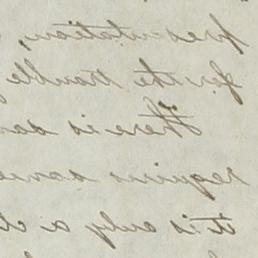 presentation,
for the trouble
There is dan
requires some
it is only a d